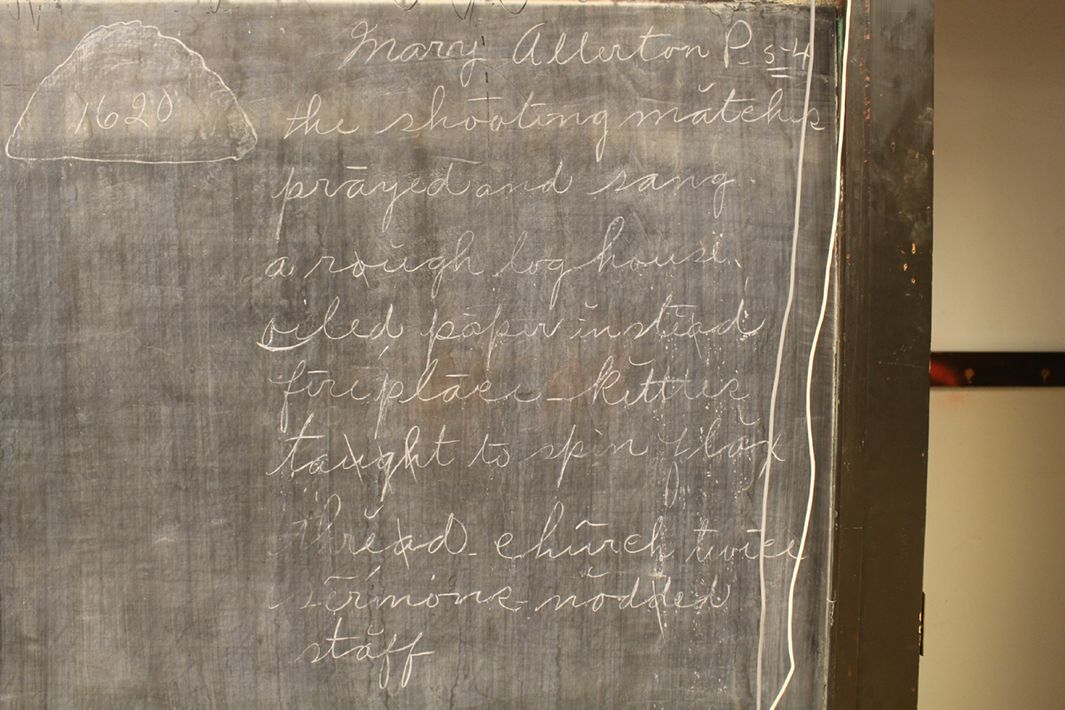 1620
Mary Allerton P-5-4
the shooting matches
prayed and sang.
a rough log house.
oiled paper instead
fire place - kettles
taught to spin flax
thread - church twice
sermons - nodded
staff